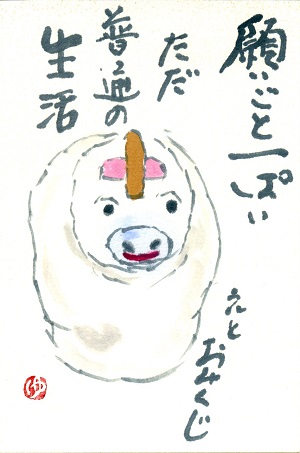 願いごと一ぱい
ただ
普通の
生活
えと
おみくじ